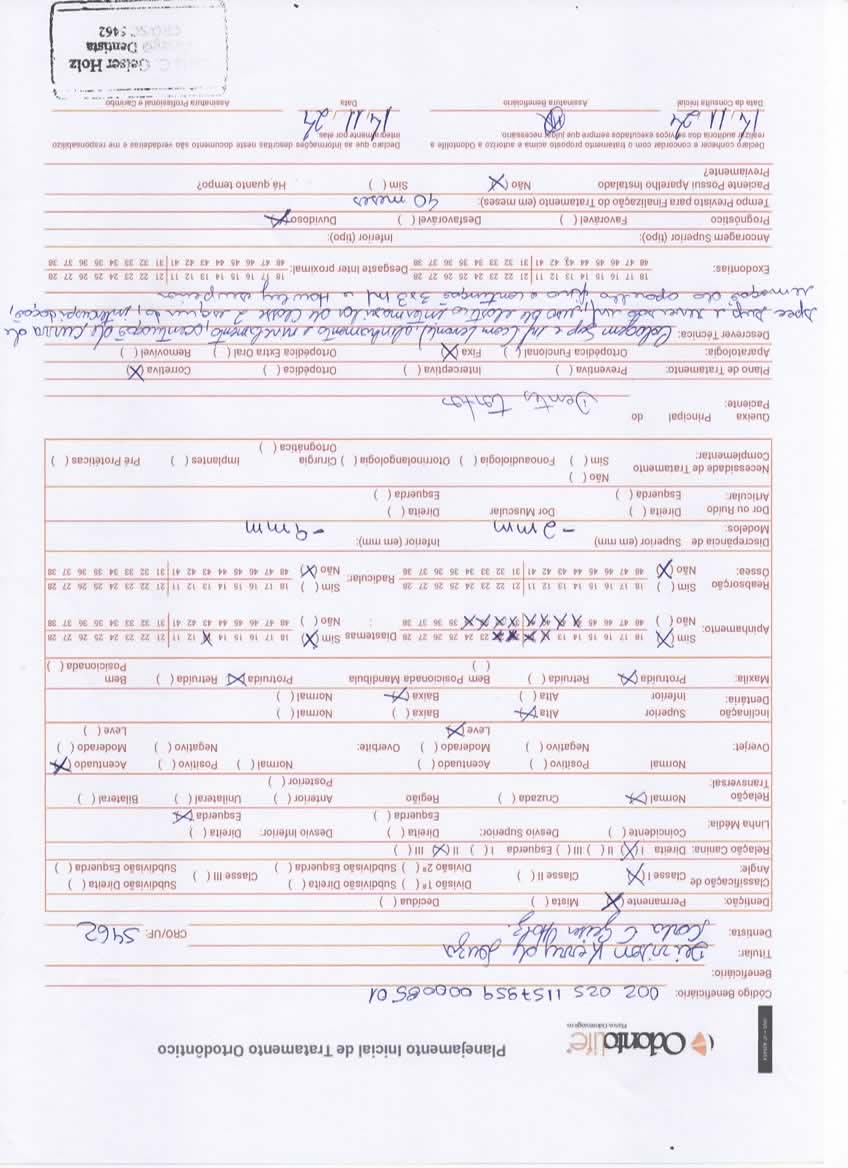 OdontoLife
Planos Odontológicos
Planejamento Inicial de Tratamento Ortodôntico
Código Beneficiário: 002 025 1157959 00008501
Beneficiário:
Titular: Kennedy Souza
Dentista: C Geiser Holz CRO/UF: 5462
Dentição: Permanente (X) Mista ( ) Decídua ( )
Classificação de Angle: Classe I (X) Classe II ( ) Divisão 1ª ( ) Subdivisão Direita ( ) Classe III ( ) Subdivisão Direita ( )
Divisão 2ª ( ) Subdivisão Esquerda ( ) Subdivisão Esquerda ( )
Relação Canina: Direita I (X) II ( ) III ( ) Esquerda I ( ) II (X) III ( )
Linha Média: Coincidente ( ) Desvio Superior: Direita ( ) Desvio Inferior: Direita ( )
Esquerda ( ) Esquerda (X)
Relação Transversal: Normal (X) Cruzada ( ) Região Anterior ( ) Unilateral ( ) Bilateral ( )
Posterior ( )
Overjet: Normal Positivo ( ) Acentuado ( ) Overbite: Normal ( ) Positivo ( ) Acentuado (X)
Negativo ( ) Moderado ( ) Negativo ( ) Moderado ( )
Leve (X) Leve ( )
Inclinação Dentária: Superior Alta (X) Baixa ( ) Normal ( )
Inferior Alta ( ) Baixa (X) Normal ( )
Maxila: Protruída (X) Retruída ( ) Bem Posicionada ( ) Mandíbula Protruída (X) Retruída ( ) Bem Posicionada ( )
Apinhamento: Sim (X) 18 17 16 15 14 13 12 11 21 22 23 24 25 26 27 28 Diastemas Sim (X) 18 17 16 15 14 13 12 11 21 22 23 24 25 26 27 28
Não ( ) 48 47 46 45 44 43 42 41 31 32 33 34 35 36 37 38 : Não ( ) 48 47 46 45 44 43 42 41 31 32 33 34 35 36 37 38
Reabsorção Óssea: Sim ( ) 18 17 16 15 14 13 12 11 21 22 23 24 25 26 27 28 Radicular: Sim ( ) 18 17 16 15 14 13 12 11 21 22 23 24 25 26 27 28
Não (X) 48 47 46 45 44 43 42 41 31 32 33 34 35 36 37 38 Não (X) 48 47 46 45 44 43 42 41 31 32 33 34 35 36 37 38
Discrepância de Modelos: Superior (em mm) -2mm Inferior (em mm): -9mm
Dor ou Ruído Articular: Direita ( ) Dor Muscular Direita ( )
Esquerda ( ) Esquerda ( )
Necessidade de Tratamento Complementar: Não ( )
Sim ( ) Fonoaudiologia ( ) Otorrinolangologia ( ) Cirurgia Ortognática ( ) Implantes ( ) Pré Protéticas ( )
Queixa Principal do Paciente: Dentes tortos
Plano de Tratamento: Preventiva ( ) Interceptiva ( ) Ortopédica ( ) Corretiva (X)
Aparatologia: Ortopédica Funcional ( ) Fixa (X) Ortopédica Extra Oral ( ) Removível ( )
Descrever Técnica: Colagem Sup e Inf alinhamento e nivelamento, curva de
spee sup e reverso inf, uso de elástico intermaxilar de Classe 2 intercuspidação,
remoção do aparelho fixo e contenção 3x3 inf e Hawley superior
Exodontias: 18 17 16 15 14 13 12 11 21 22 23 24 25 26 27 28 Desgaste Inter proximal: 18 17 16 15 14 13 12 11 21 22 23 24 25 26 27 28
48 47 46 45 44 43 42 41 31 32 33 34 35 36 37 38 48 47 46 45 44 43 42 41 31 32 33 34 35 36 37 38
Ancoragem Superior (tipo): Inferior (tipo):
Prognóstico Favorável ( ) Desfavorável ( ) Duvidoso (X)
Tempo Previsto para Finalização do Tratamento (em meses): 40 meses
Paciente Possui Aparelho Instalado Previamente? Não (X) Sim ( ) Há quanto tempo?
Declaro conhecer e concordar com o tratamento proposto acima e autorizo a Odontolife a realizar auditoria dos serviços executados sempre que julgar necessário
Declaro que as informações descritas neste documento são verdadeiras e me responsabilizo integralmente por elas.
14, 11, 24 14, 11, 24
Data da Consulta Inicial Assinatura Beneficiário Data Assinatura Profissional e Carimbo
C. Geiser Holz
Dentista
5462